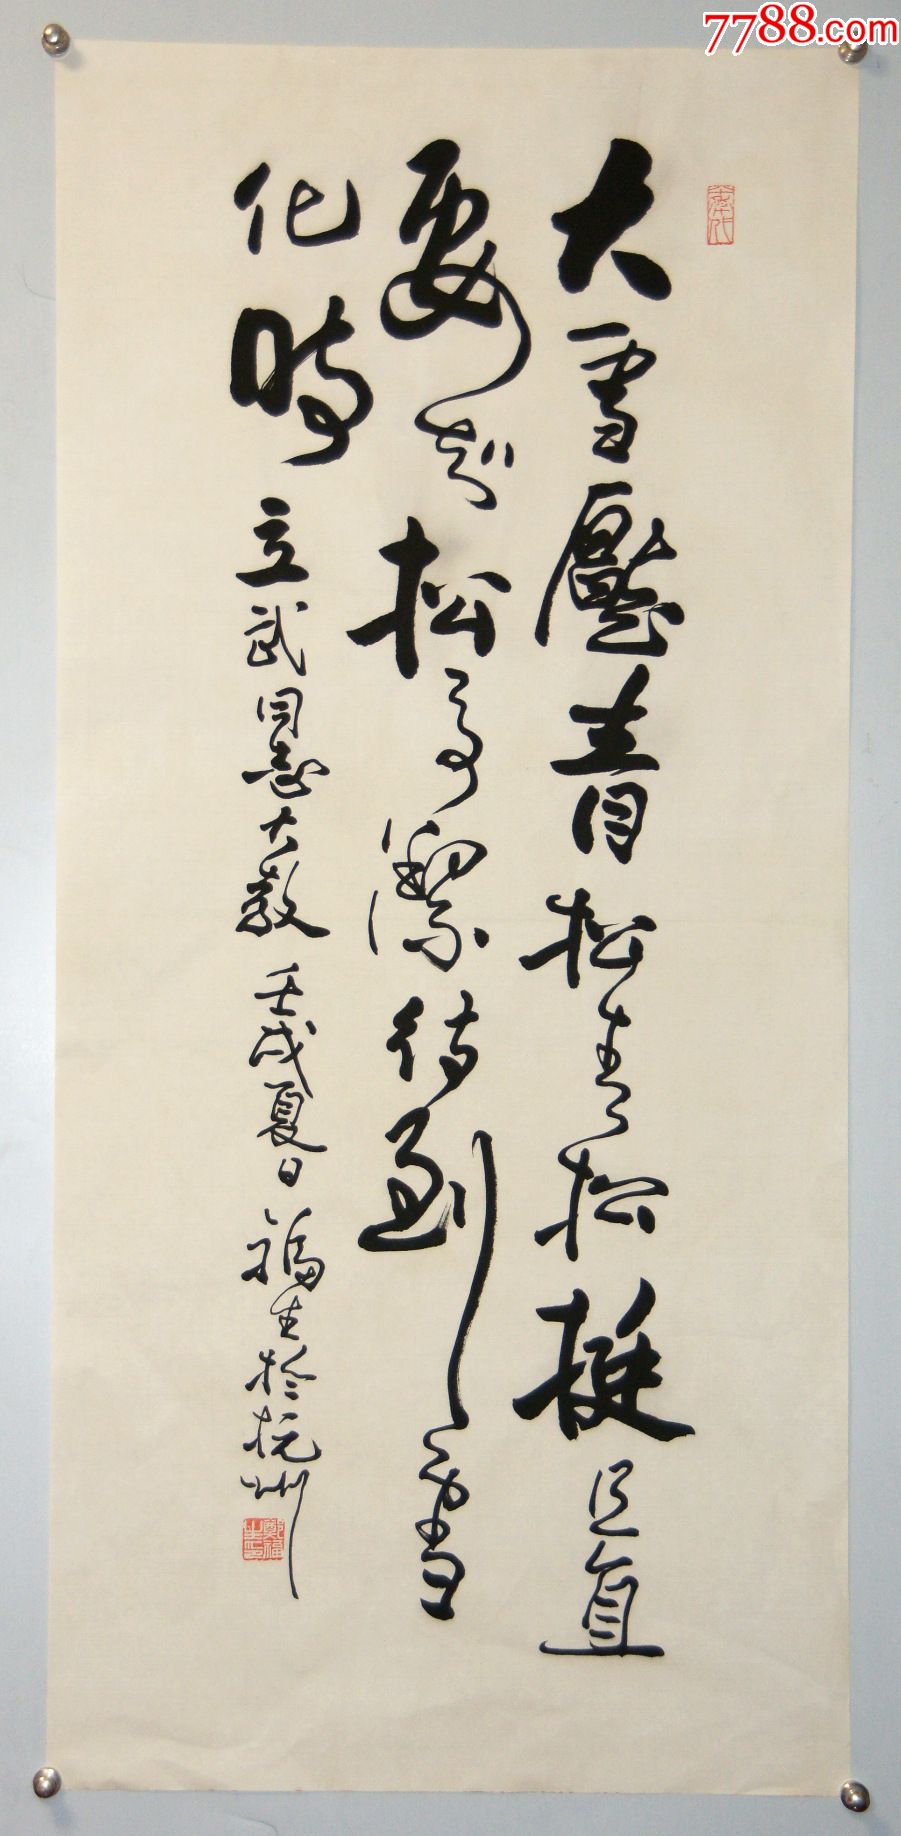 7788.com
大雪壓青松青松挺且直
要知松高潔待到雪
化時 立武同志大教 壬戌夏日 福生於杭州
鄭福生印